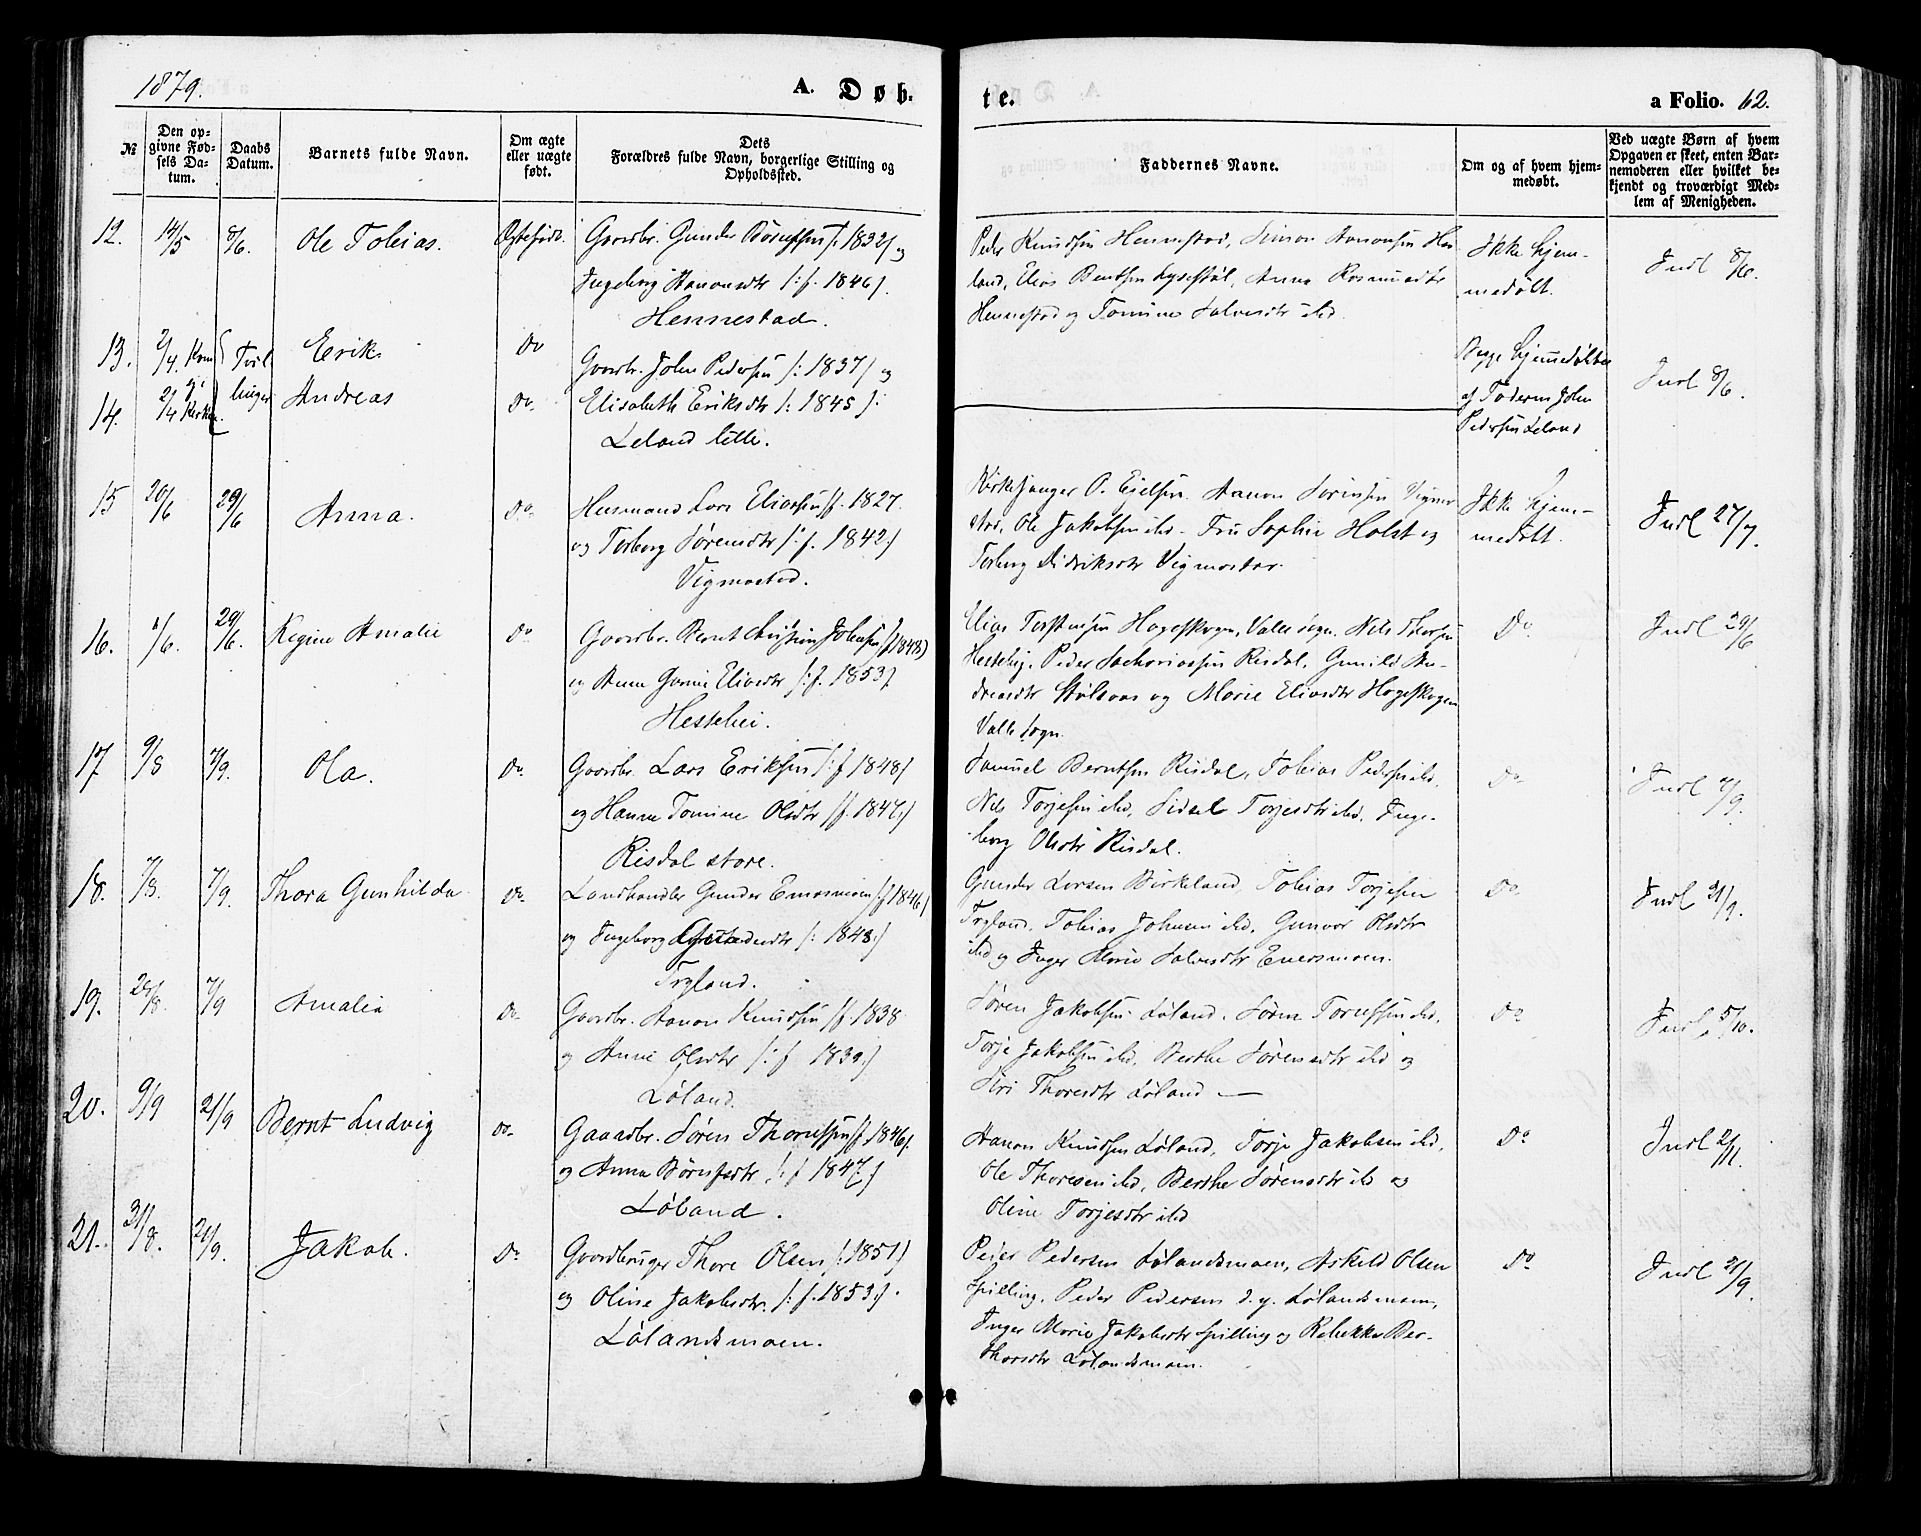 1879.
A. Døb-
te.
a Folio. 62.
№
Den op-
givne Fød-
sels Da-
tum.
Daabs
Datum.
Barnets fulde Navn.
Om ægte
eller uægte
født.
Dets
Forældres fulde Navn, borgerlige Stilling og
Opholdssted.
Faddernes Navne.
Om og af hvem hjem-
medøbt.
Ved uægte Børn af hvem
Opgaven er skeet, enten Bar-
nemoderen eller hvilket be-
kjendt og troværdigt Med-
lem af Menigheden.
12.
14/5
8/6.
Ole Tobias.
Ægtefødt.
Gaardbr. Gunder Børuffsen /: 1832/ og
Ingeborg Aanonsdtr /: f. 1846/.
Hennestad.
Peder Knudsen Hennestad, Simon Aanonsen
land, Elias Berntsen Lysestøl, Anna Rasmusdtr
Hennestad og Tomine Salvesdtr ibd.
Ikke hjem-
medøbt.
Indl 8/6.
13.
2/4.
Tvil
Erik
Do
Gaardbr. John Pedersen /: 1837/ og
Begge hjemmedøbte
Indl 8/6.
14.
2/4
linger
Andreas
Do.
Elisabeth Eriksdtr /: 1845 /:
af Faderen John
Leland lille.
Pedersen Leland
15
20/6
29/6
Anna.
Do
Husmand Lars Eliassen /f. 1827.
og Torborg Sørensdtr /: f. 1842:/
Vigmostad.
Kirkesanger O. Eielsen. Aanon Sørensen Vigmo-
stad, Ole Jakobsen ibd. Fru Sophie Holst og
Torborg Didriksdtr Vigmostad.
Ikke hjem-
medøbt.
Indl 27/7.
16.
1/6.
29/6.
Regine Amalie
Do
Gaardbr. Bernt Christian Johnsen /f 1848)
og Anne Gurine Eliasdtr /: f. 1853/.
Hestehei.
Elias Torstensen Hageskogen, Valle sogn. Nils Thorsen
Hestehei, Peder Sachariassen Risdal, Gunild An-
dreasdtr Stølsvas og Marie Eliasdtr Hageskogen
Valle sogn.
Do.
Indl 29/6
17
9/8
7/9.
Ola.
Do.
Gaardbr. Lars Eriksen /: f 1848/
og Hanne Tomine Olsdtr /f. 1847:/
Risdal store.
Samuel Berntsen Risdal, Tobias Pedersen ibd.
Nils Torjesen ibd, Sidsel Torjesdtr ibd, Inge-
borg Olsdtr Risdal.
Do
Indl 7/9.
18.
7/8.
7/9.
Thora Gunhilda
Do.
Landhandler Gunder Enersmoen /: f 1846/
og Ingeborg /: 1843:/
Trygland.
Gunder Larsen Birkeland, Tobias Torjesen
Trygland, Tobias Johnsen ibd, Gunvor Olsdtr
ibd og Inger Marie Salvesdtr Enersmoen.
Do
Indl 21/9.
19.
28/8.
7/9
Amalia
Do.
Gaardbr. Aanon Knudsen /f. 1838
og Anne Olsdtr /: f 1839:/
Løland.
Søren Jakobsen Løland, Søren Torussen ibd,
Torje Jakobsen ibd, Berthe Sørensdtr ibd og
Siri Thoresdtr Løland —
Do
Indl. 5/10.
20.
9/9
21/9
Bernt Ludvig
Do.
Gaardbr. Søren Thorussen /f. 1846/.
og Anna Børufsdtr /: f 1847:/
Løland.
Aanon Knudsen Løland, Torje Jakobsen ibd,
Ole Thoresen ibd, Berthe Sørensdtr ibd og
Oline Torjesdtr ibd
Do
Indl 2/11.
21.
31/8.
21/9.
Jakob.
Do
Gaardbruger Thore Olsen /: 1851/
og Oline Jakobsdtr. /: f. 1853:/.
Lølandsmoen.
Peder Pedersen Lølandsmoen, Askild Olsen
Spilling, Peder Pedersen d. y. Lølandsmoen,
Inger Marie Jakobsdtr Spilling og Rebekka Ber-
thasdtr Lølandsmoen.
Do
Indl 21/9.